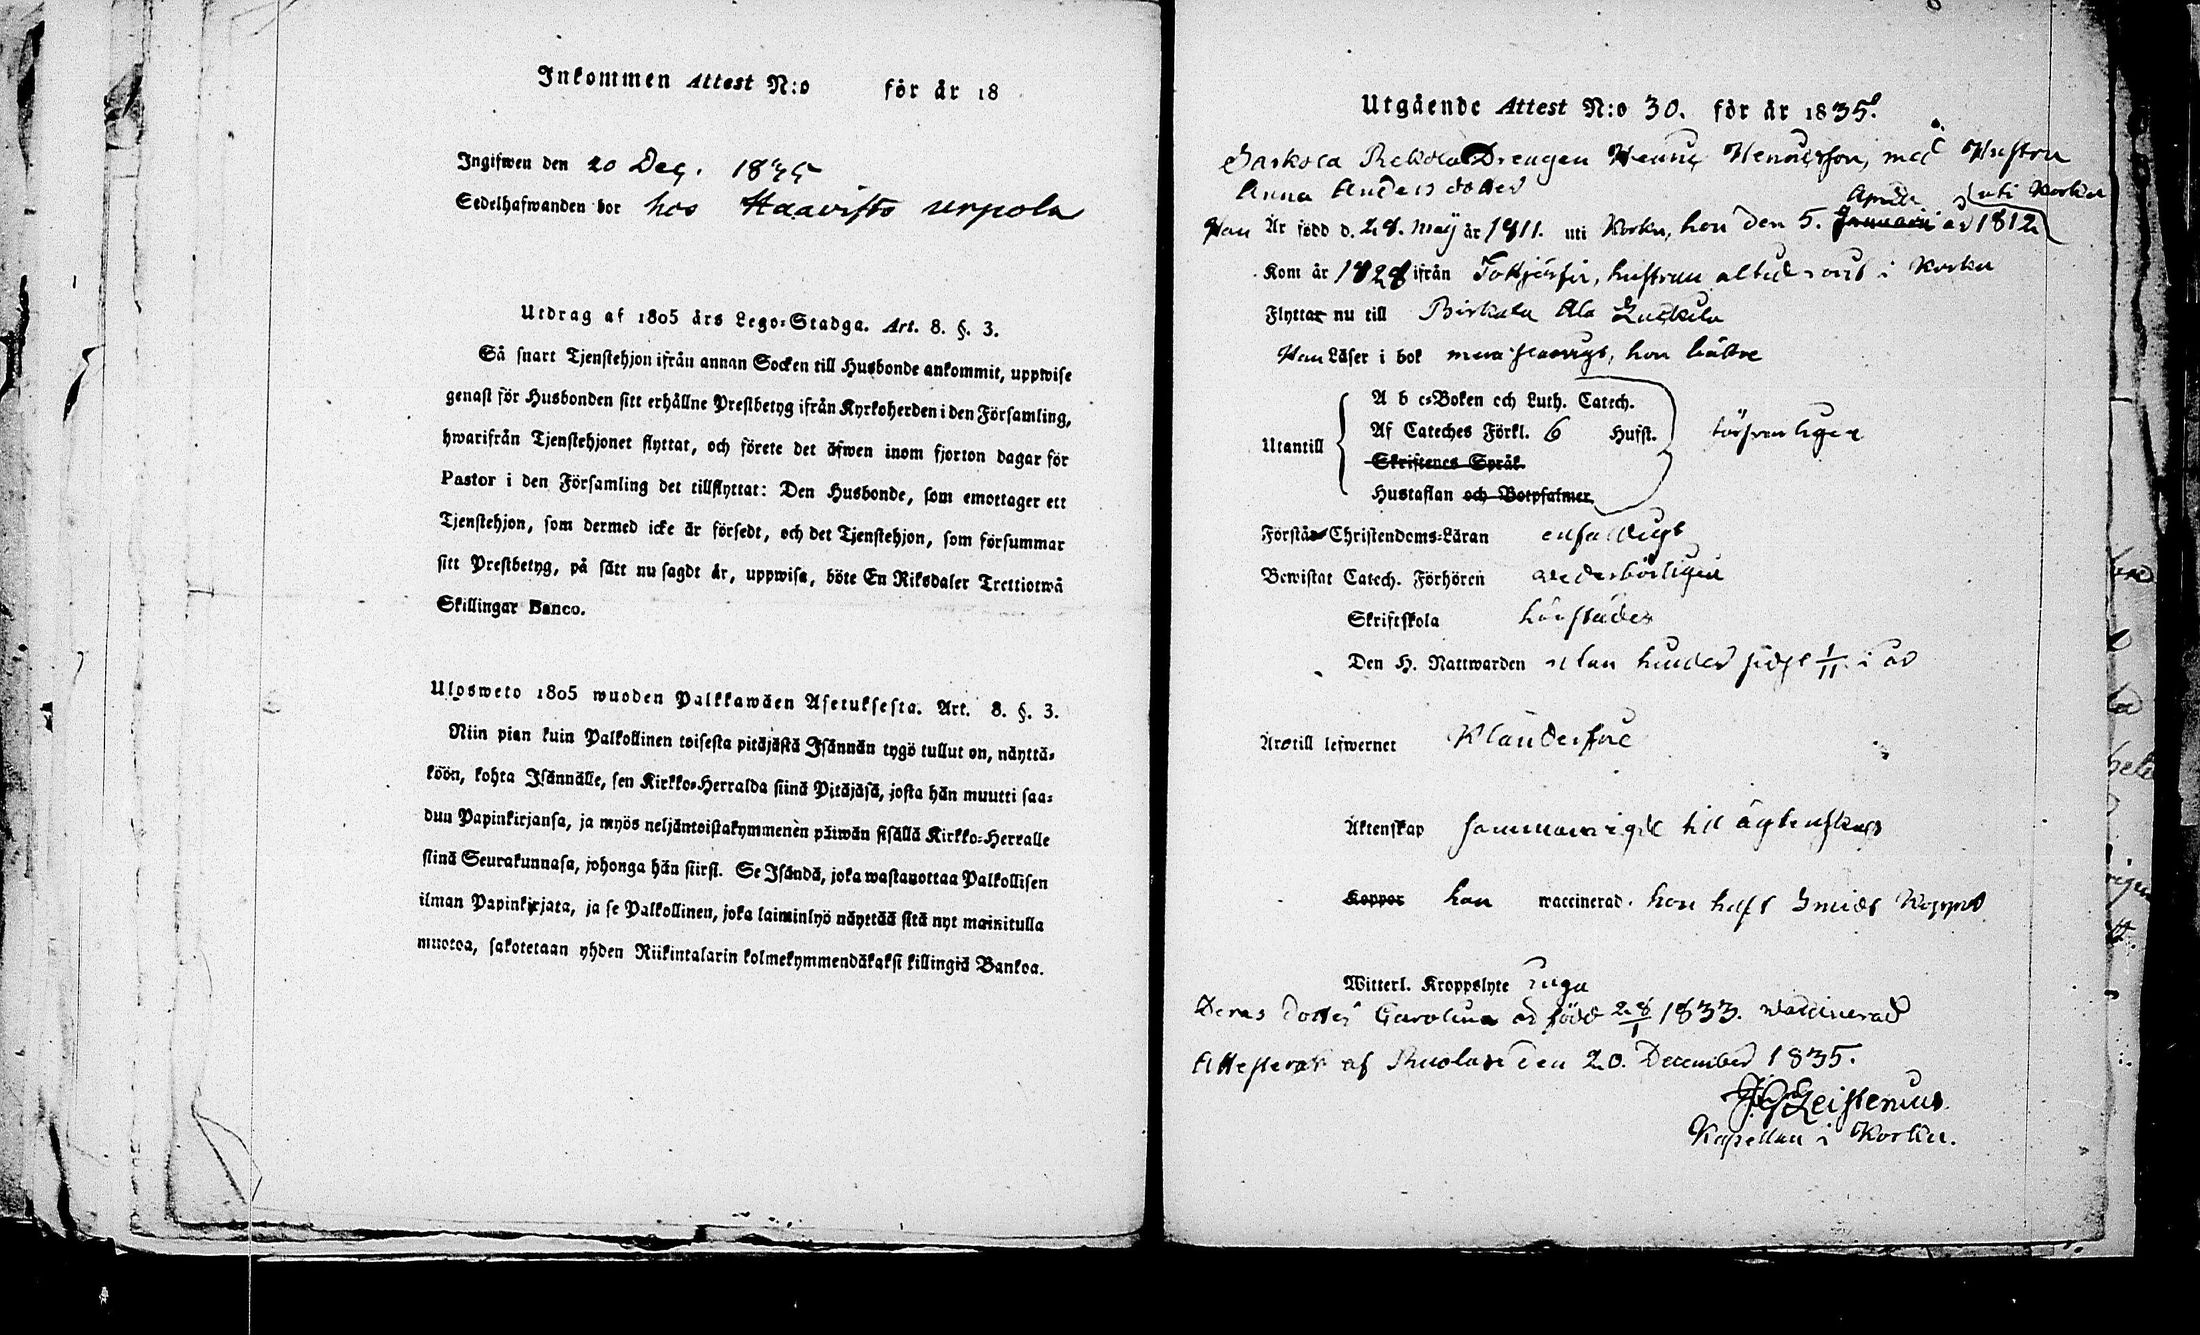 Inkommen Attest N:o för år 18
Ingifwen den 20 Dec. 1835
Sedelhafwanden bor hos Haavisto urpola
Utdrag af 1805 års Lego-Stadga. Art. 8. §. 3.
Så snart Tjenstehjon ifrån annan Socken till Husbonde ankommit, uppwise
genast för Husbonden sitt erhållne Prestbetyg ifrån Kyrkoherden i den Församling,
hwarifrån Tjenstehjonet flyttat, och förete det äfwen inom fjorton dagar för
Pastor i den Församling det tillflyttat: Den Husbonde, som emottager ett
Tjenstehjon, som dermed icke är försedt, och det Tjenstehjon, som försummar
sitt Prestbetyg, på sätt nu sagdt är, uppwisa, böte En Riksdaler Trettiotwå
Skillingar Banco.
Ulosweto 1805 wuoden Palkkawäen Asetuksesta. Art. 8. §. 3.
Niin pian kuin Palkollinen toisesta pitäjästä Isännän tygö tullut on, näyttä-
köön, kohta Isännälle, sen Kirkko-Herralda siinä Pitäjäsä, josta hän muutti saa-
dun Papinkirjansa, ja myös neljäntoistakymmenen päiwän sisällä Kirkko-Herralle
siinä Seurakunnasa, johonga hän siirsi. Se Isändä, joka wastanottaa Palkollisen
ilman Papinkirjata, ja se Palkollinen, joka laiminlyö näyttää sitä nyt mainitulla
muotoa, sakotetaan yhden Riikintalarin kolmekymmendäkaksi killingiä Bankoa.
Utgående Attest N:o 30. för år 1835.
Sarkola Rekola Drengen Henric Henricsson, med Hustru
Anna Andersdotter
April uti Korku
Han Är född d. 28. maij år 1811. uti Korku, hon den 5. Januarii år 1812
Kom år 1828 ifrån Tottijärfvi, hustrun altid varit i Korku
Flyttar nu till Birkala Ala
Han Läser i bok hon bättre
A b c-Boken och Luth. Catech.
Utantill Af Cateches Förkl. 6 Husst. försvarligen
Skriftenes Språk
Hustaflan och Botpsalmer
Förstår Christendoms-Läran enfaldigt
Bewistat Catech. Förhören wederbörligen
Skriftskola härstädes
Den H. Nattwarden utan hinder sidst 1/11 i år
Är till lefwernet Klanderfrie
Äktenskap sammanvigde till ägtenskap
Koppor han waccinerad. hon haft Koppor
Witterl. Kroppslyte inga
Deras dotter Carolina är född 28/1 1833. waccinerad
Attesterar af den 20. December 1835.
J. G. Zeisternius.
Kapellan i Korku.